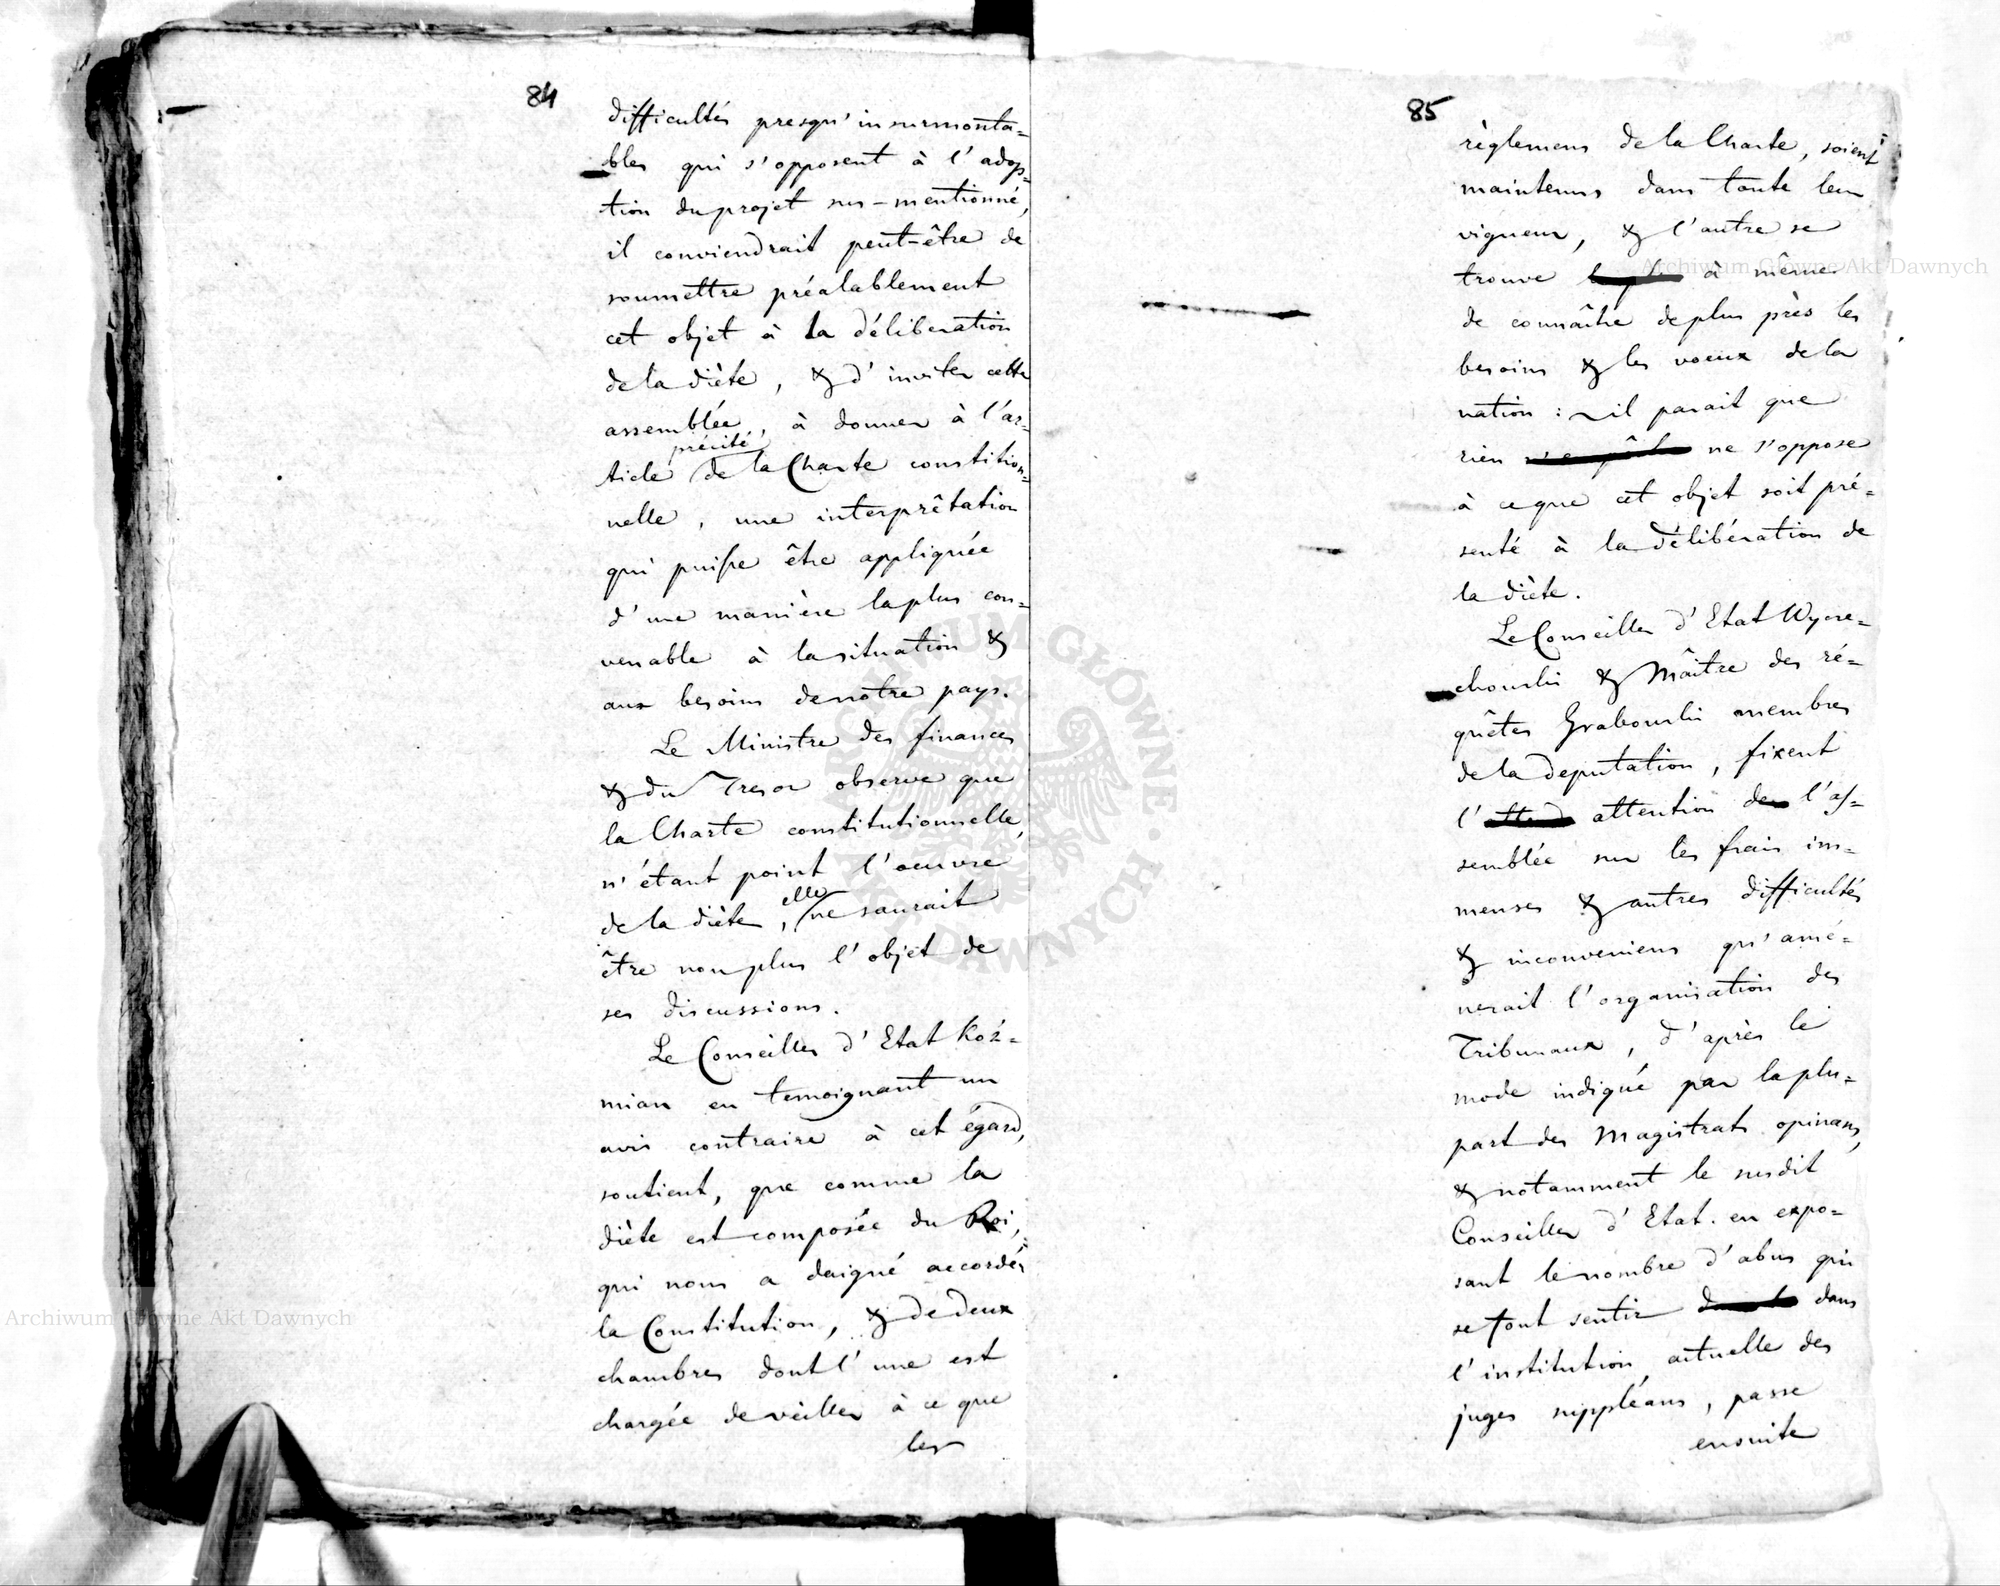 84
difficultés presqu'insurmonta=
bles qui s'opposent à l'adop=
tion du projet sus-mentionné,
il conviendrait peut-être de
soumettre préalablement
cet objet à la délibération
de la diète, & d'inviter cette
assemblée, à donner à l'ar=
précité
ticle de la Charte constition=
nelle, une interprêtation
qui puisse être appliquée
d'une manière la plus con=
venable à la situation &
aux besoins de notre pays.
Le Ministre des finances
& du Tresor observe que
la Charte constitutionnelle,
n'étant point l'oeuvre
elle
de la diète, ne saurait
être non plus l'objet de
ses discussions.
Le Conseiller d'Etat Koź=
mian en temoignant un
avis contraire à cet égard,
soutient, que comme la
diète est composée du Roi,
qui nous a daigné accorder
la Constitution, & de deux
chambres dont l'une est
chargée de veiller à ce que
les
85
règlemens de la Charte, soient
maintenus dans toute leur
vigueur, & l'autre se
trouve à même
de connaître de plus près les
besoins & les voeux de la
nation : il parait que
rien ne s'oppose
à ce que cet objet soit pré=
senté à la délibération de
la diète.
Le Conseiller d'Etat Wyore=
chowski & Maître des ré=
quêtes Grabowski membres
de la deputation, fixent
l' attention de l'as=
semblée sur les frais im=
menses & autres difficultés
& inconveniens qu'amé=
nerait l'organisation des
Tribunaux, d'après le
mode indiqué par la plu=
part des Magistrats opinans,
& notamment le susdit
Conseiller d'Etat. en expo=
sant le nombre d'abus qui
se font sentir dans
l'institution actuelle des
juges suppléans, passe
ensuite
Archiwum Główne Akt Dawnych
Archiwum Główne Akt Dawnych
ARCHIWUM GŁÓWNE AKT DAWNYCH